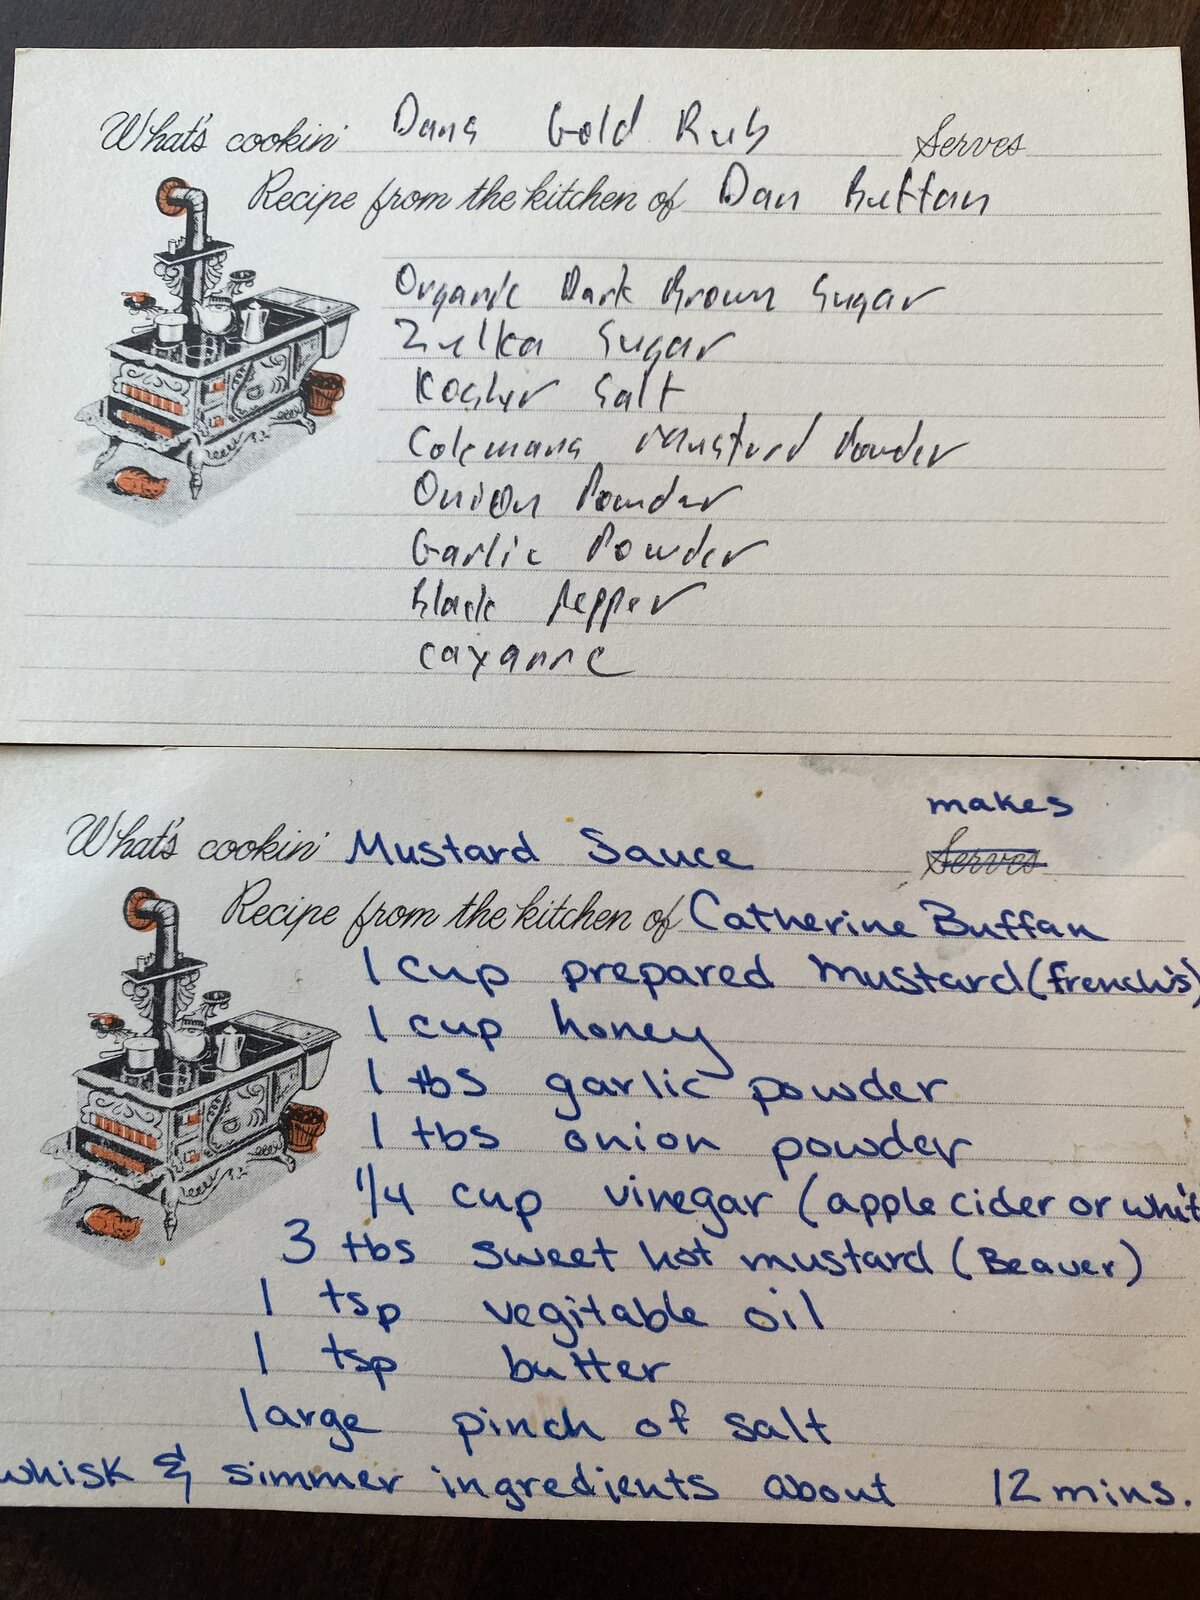 What's cookin' Dans Gold Rub Serves
Recipe from the kitchen of Dan Buffan
Organic Dark Brown Sugar
Zulka Sugar
Kosher Salt
Colemans Mustard Powder
Onion Powder
Garlic Powder
Black Pepper
Cayanne
makes
What's cookin' Mustard Sauce Serves
Recipe from the kitchen of Catherine Buffan
1 cup prepared mustard (french's)
1 cup honey
1 tbs garlic powder
1 tbs onion powder
1/4 cup vinegar (apple cider or whit
3 tbs sweet hot mustard (Beaver)
1 tsp vegitable oil
1 tsp butter
large pinch of salt
whisk & simmer ingredients about 12 mins.